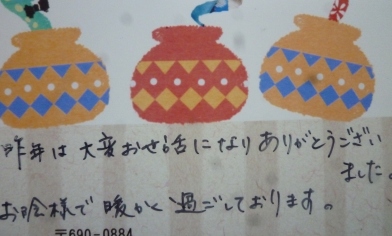 昨年は大変お世話になりありがとうござい
ました。
お陰様で暖かく過ごしております。
〒690-0884